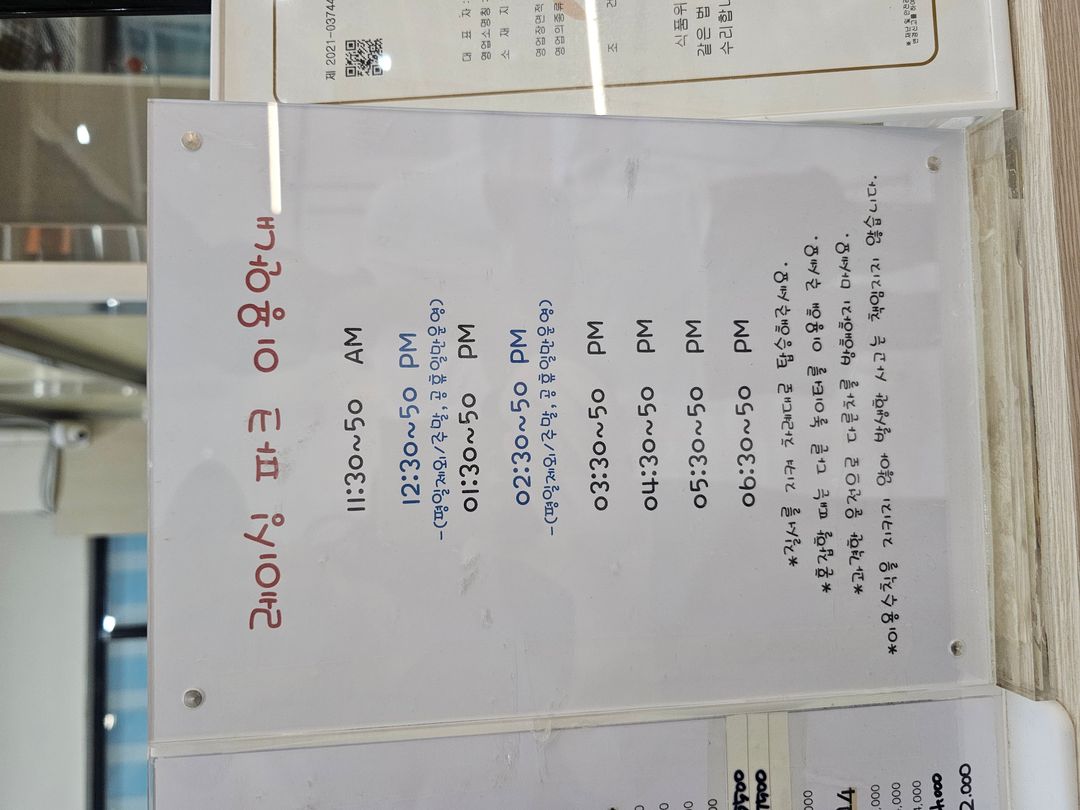 레이싱 파크 이용안내
11:30~50 AM
12:30~50 PM
-(평일제외/주말,공휴일만운영)
01:30~50 PM
02:30~50 PM
-(평일제외/주말,공휴일만운영)
03:30~50 PM
04:30~50 PM
05:30~50 PM
06:30~50 PM
*질서를 지켜 차례대로 탑승해주세요.
*혼잡할 때는 다른 놀이터를 이용해 주세요.
*과격한 운전으로 다른차를 방해하지 마세요.
*이용수칙을 지키지 않아 발생한 사고는 책임지지 않습니다.
7500
,000
,000
4,000
2.000
제 2021-03744
대 표 자 :
영업소명칭 :
소 재 지
영업장면적
영업의종류
조 건
식품위
같은 법
수리합니